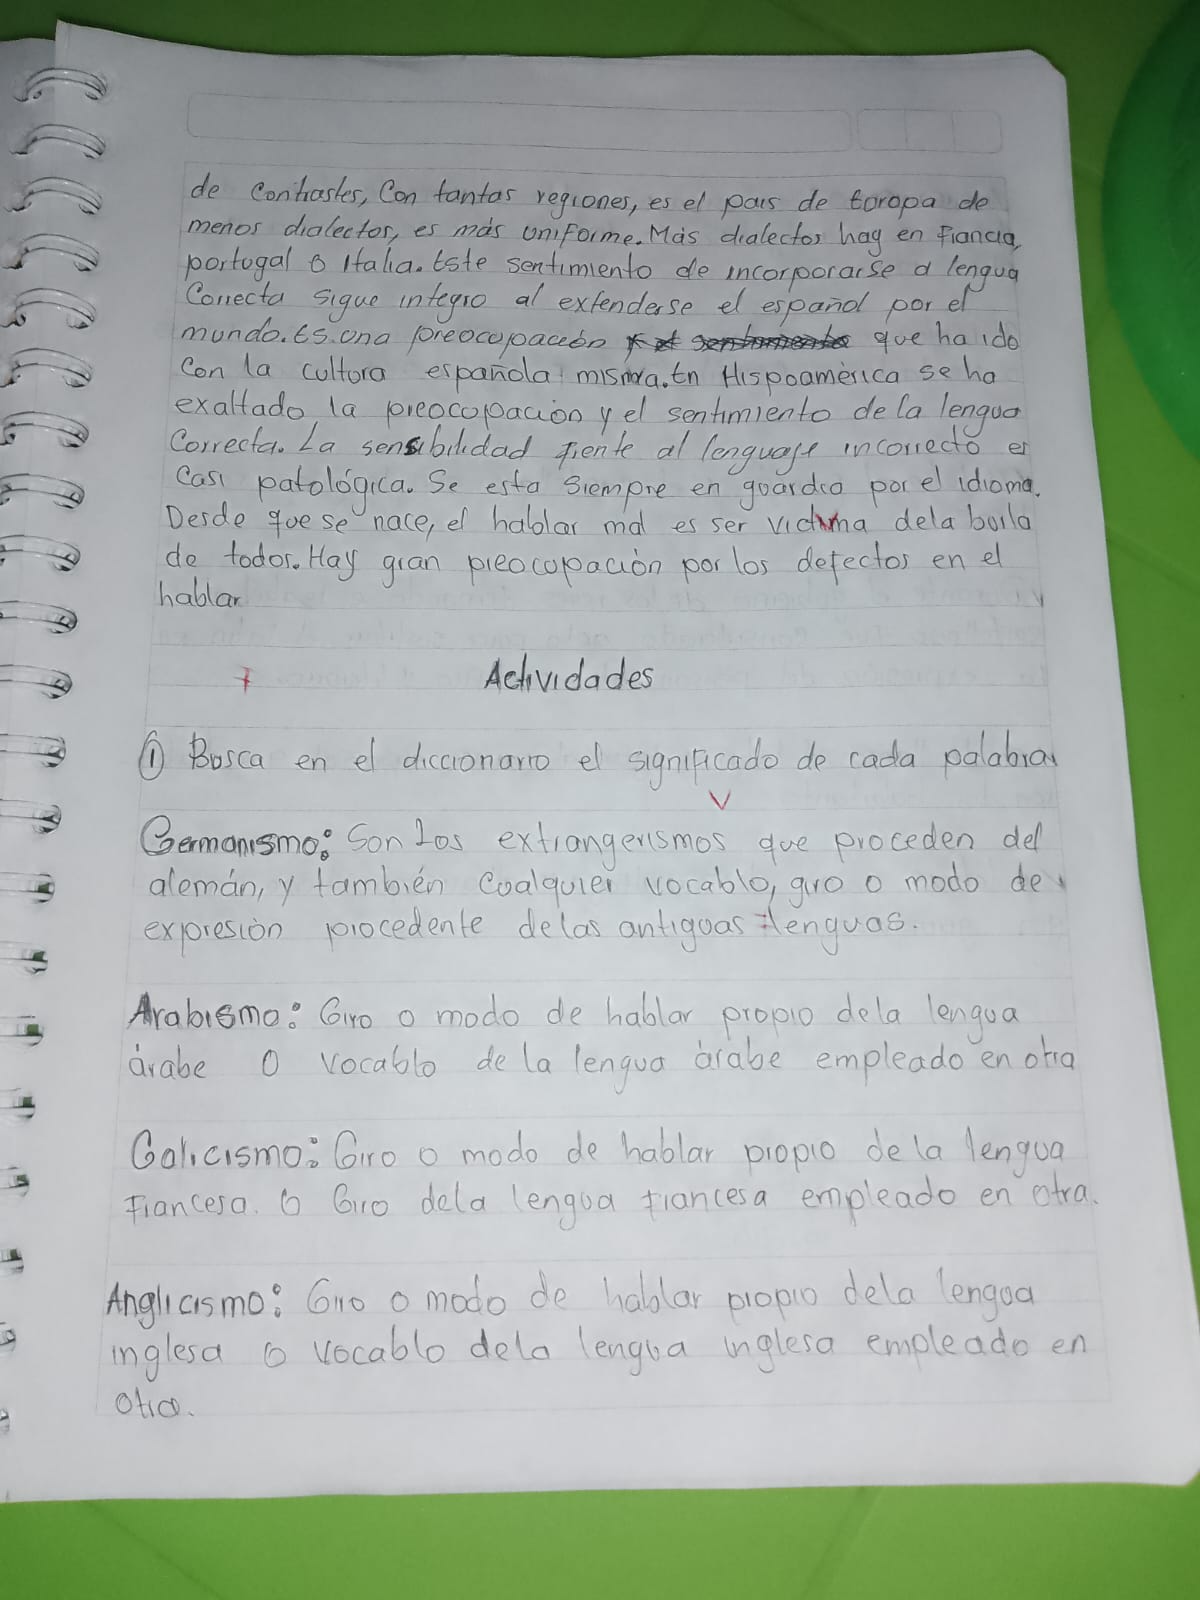 de contrastes, Con tantas regiones, es el pais de Europa de
menos dialectos, es más uniforme. Más dialectos hay en Francia,
portugal o Italia. Este sentimiento de incorporarse a lengua
Correcta sigue integro al extenderse el español por el
mundo. Es una preocupación que ha ido
Con la cultura española misma. En Hispoamérica se ha
exaltado la preocupación y el sentimiento de la lengua
Correcta. La sensibilidad frente al lenguaje incorrecto es
Casi patológica. Se esta siempre en guardia por el idioma.
Desde que se nace, el hablar mal es ser victima dela burla
de todos. Hay gran preocupación por los defectos en el
hablar
Actividades
① Busca en el diccionario el significado de cada palabra
Germanismo: Son los extrangerismos que proceden del
alemán, y también cualquier vocablo, giro o modo de
expresión procedente delas antiguas lenguas.
Arabismo: Giro o modo de hablar propio dela lengua
árabe o vocablo de la lengua árabe empleado en otra
Galicismo: Giro o modo de hablar propio de la lengua
Francesa. o Giro dela lengua francesa empleado en otra.
Anglicismo: Giro o modo de hablar propio dela lengua
inglesa o vocablo dela lengua inglesa empleado en
otra.